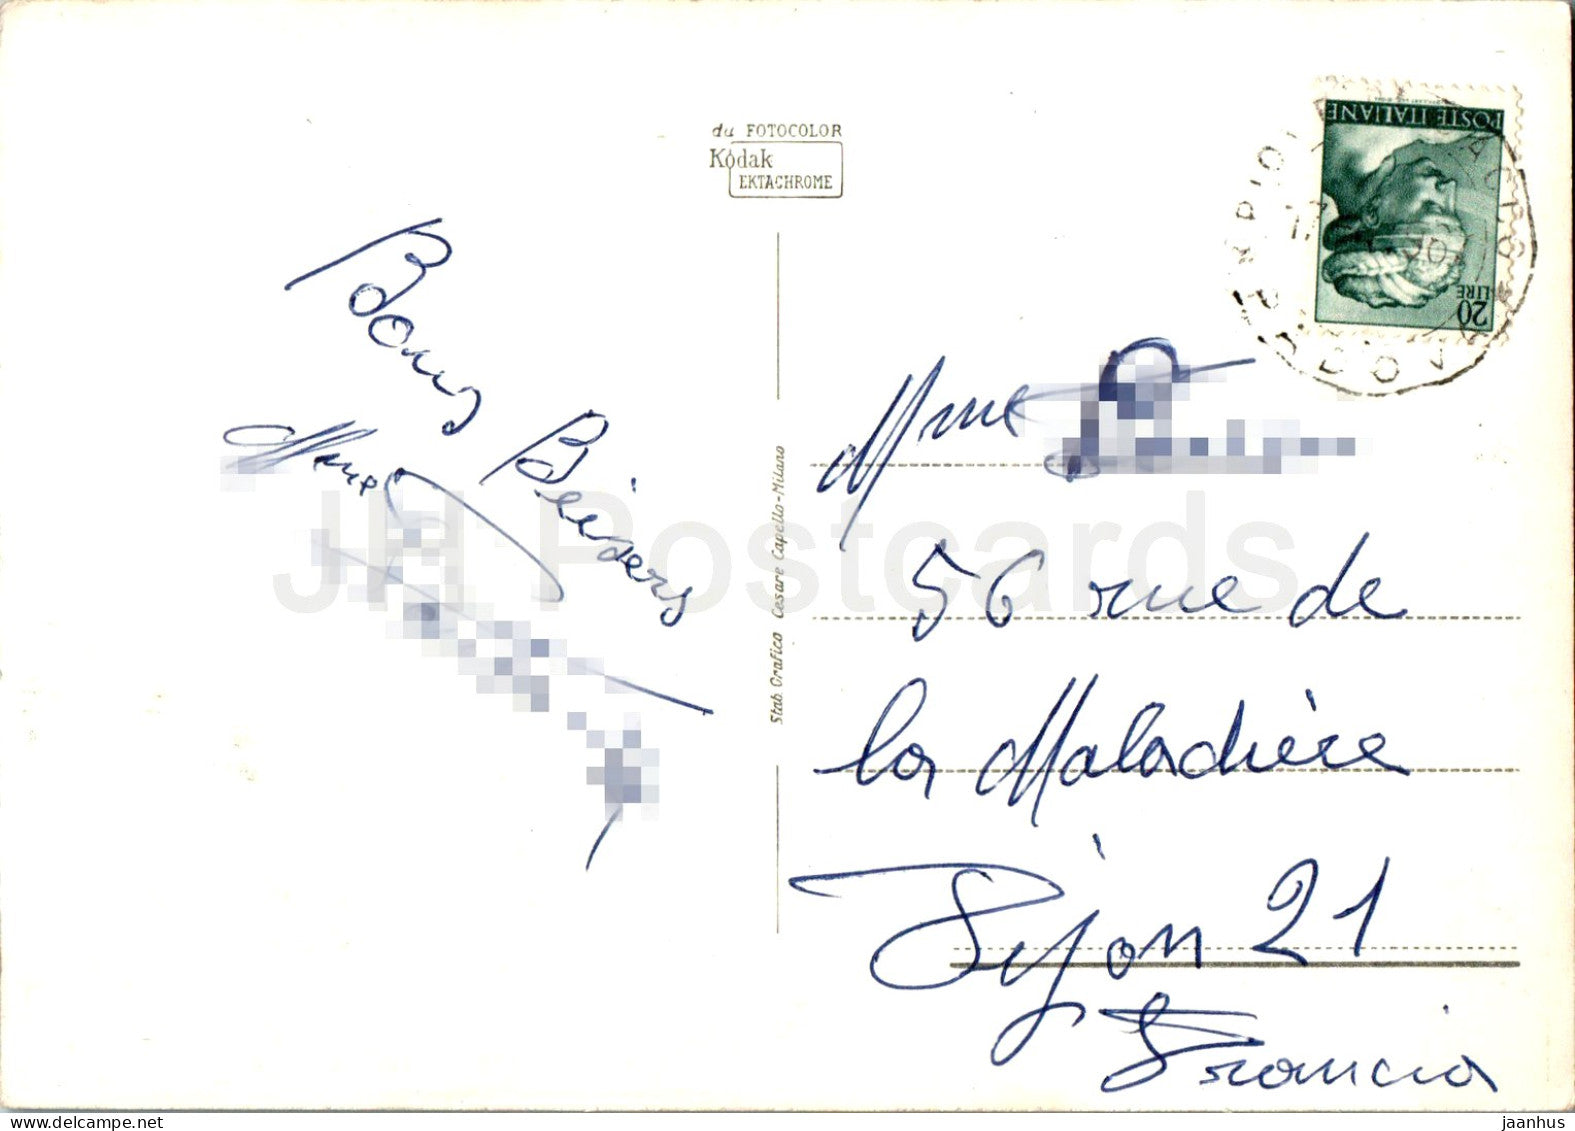 du FOTOCOLOR
Kodak
EKTACHROME
POSTE ITALIANE
LIRE
20
Bons Baisers
Mme
Stab. Grafico Cesare Capello-Milano
Mme
56 rue de
la Maladière
Dijon 21
Francia
JH Postcards
jaanhus
delcampe.net